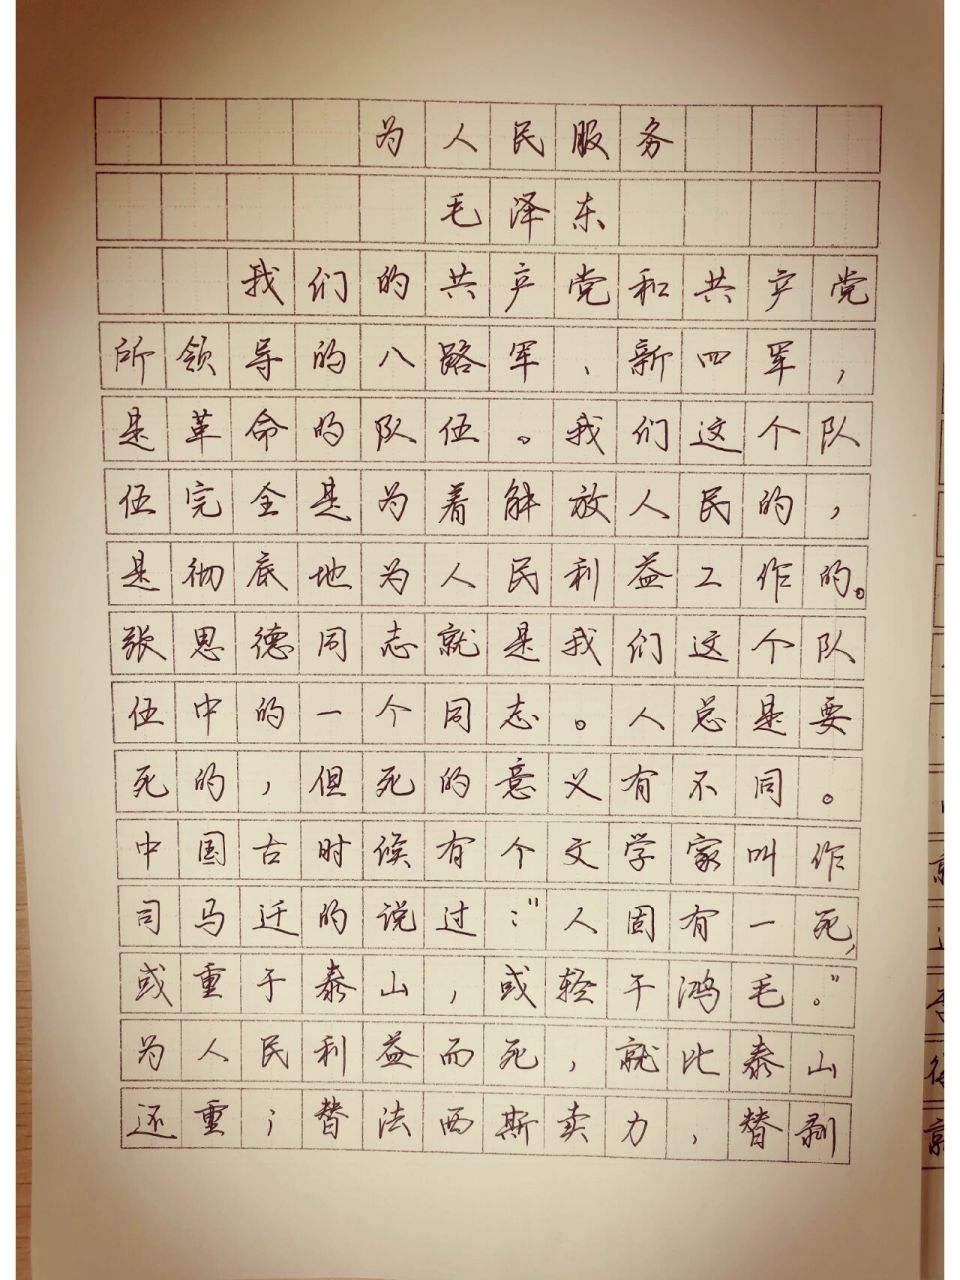 为人民服务
毛泽东
我们的共产党和共产党
所领导的八路军、新四军，
是革命的队伍。我们这个队
伍完全是为着解放人民的，
是彻底地为人民利益工作的。
张思德同志就是我们这个队
伍中的一个同志。人总是要
死的，但死的意义有不同。
中国古时候有个文学家叫作
司马迁的说过：“人固有一死，
或重于泰山，或轻于鸿毛。”
为人民利益而死，就比泰山
还重；替法西斯卖力，替剥